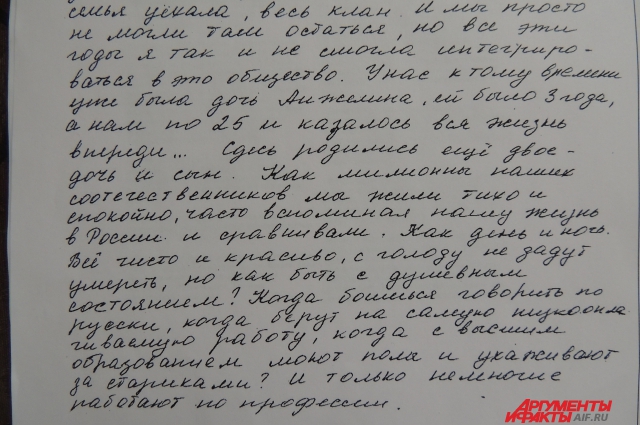 семья уехала, весь клан. И мы просто
не могли там остаться, но все эти
годы я так и не смогла интегриро-
ваться в это общество. У нас к тому времени
уже была дочь Анжелина, ей было 3 года,
а нам по 25 и казалось вся жизнь
впереди... Здесь родились ещё двое-
дочь и сын. Как миллионы наших
соотечественников мы жили тихо и
спокойно, часто вспоминая нашу жизнь
в России и сравнивали. Как день и ночь.
Всё чисто и красиво, с голоду не дадут
умереть, но как быть с душевным
состоянием? Когда боишься говорить по
русски, когда берут на самую низкоопла
чиваемую работу, когда с высшим
образованием моют полы и ухаживают
за стариками? И только немногие
работают по профессии.
АРГУМЕНТЫ
И ФАКТЫ AIF.RU